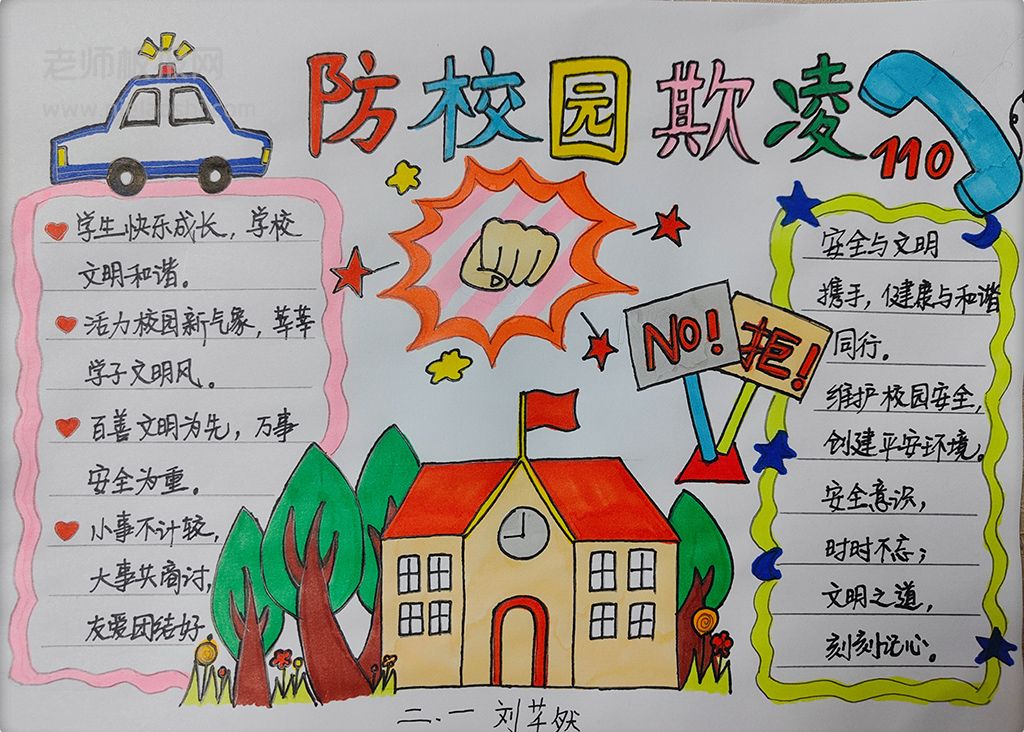 防校园欺凌
110
学生快乐成长，学校
文明和谐。
活力校园新气象，莘莘
学子文明风。
百善文明为先，万事
安全为重。
小事不计较，
大事共商讨，
友爱团结好。
NO!
拒!
安全与文明
携手，健康与和谐
同行。
维护校园安全，
创建平安环境。
安全意识，
时时不忘；
文明之道，
刻刻记心。
二、一 刘芊